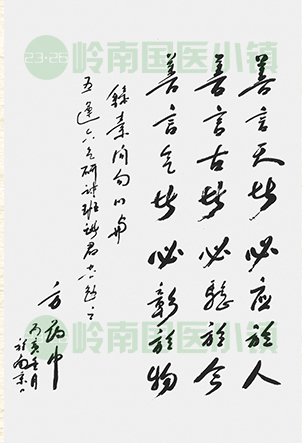 23·26 岭南国医小镇
善言天者必应於人
善言古者必驗於今
善言气者必彰於物
錄素问句以与
五運六气研讨班诸君共勉之
方药中
於南京
岭南国医小镇